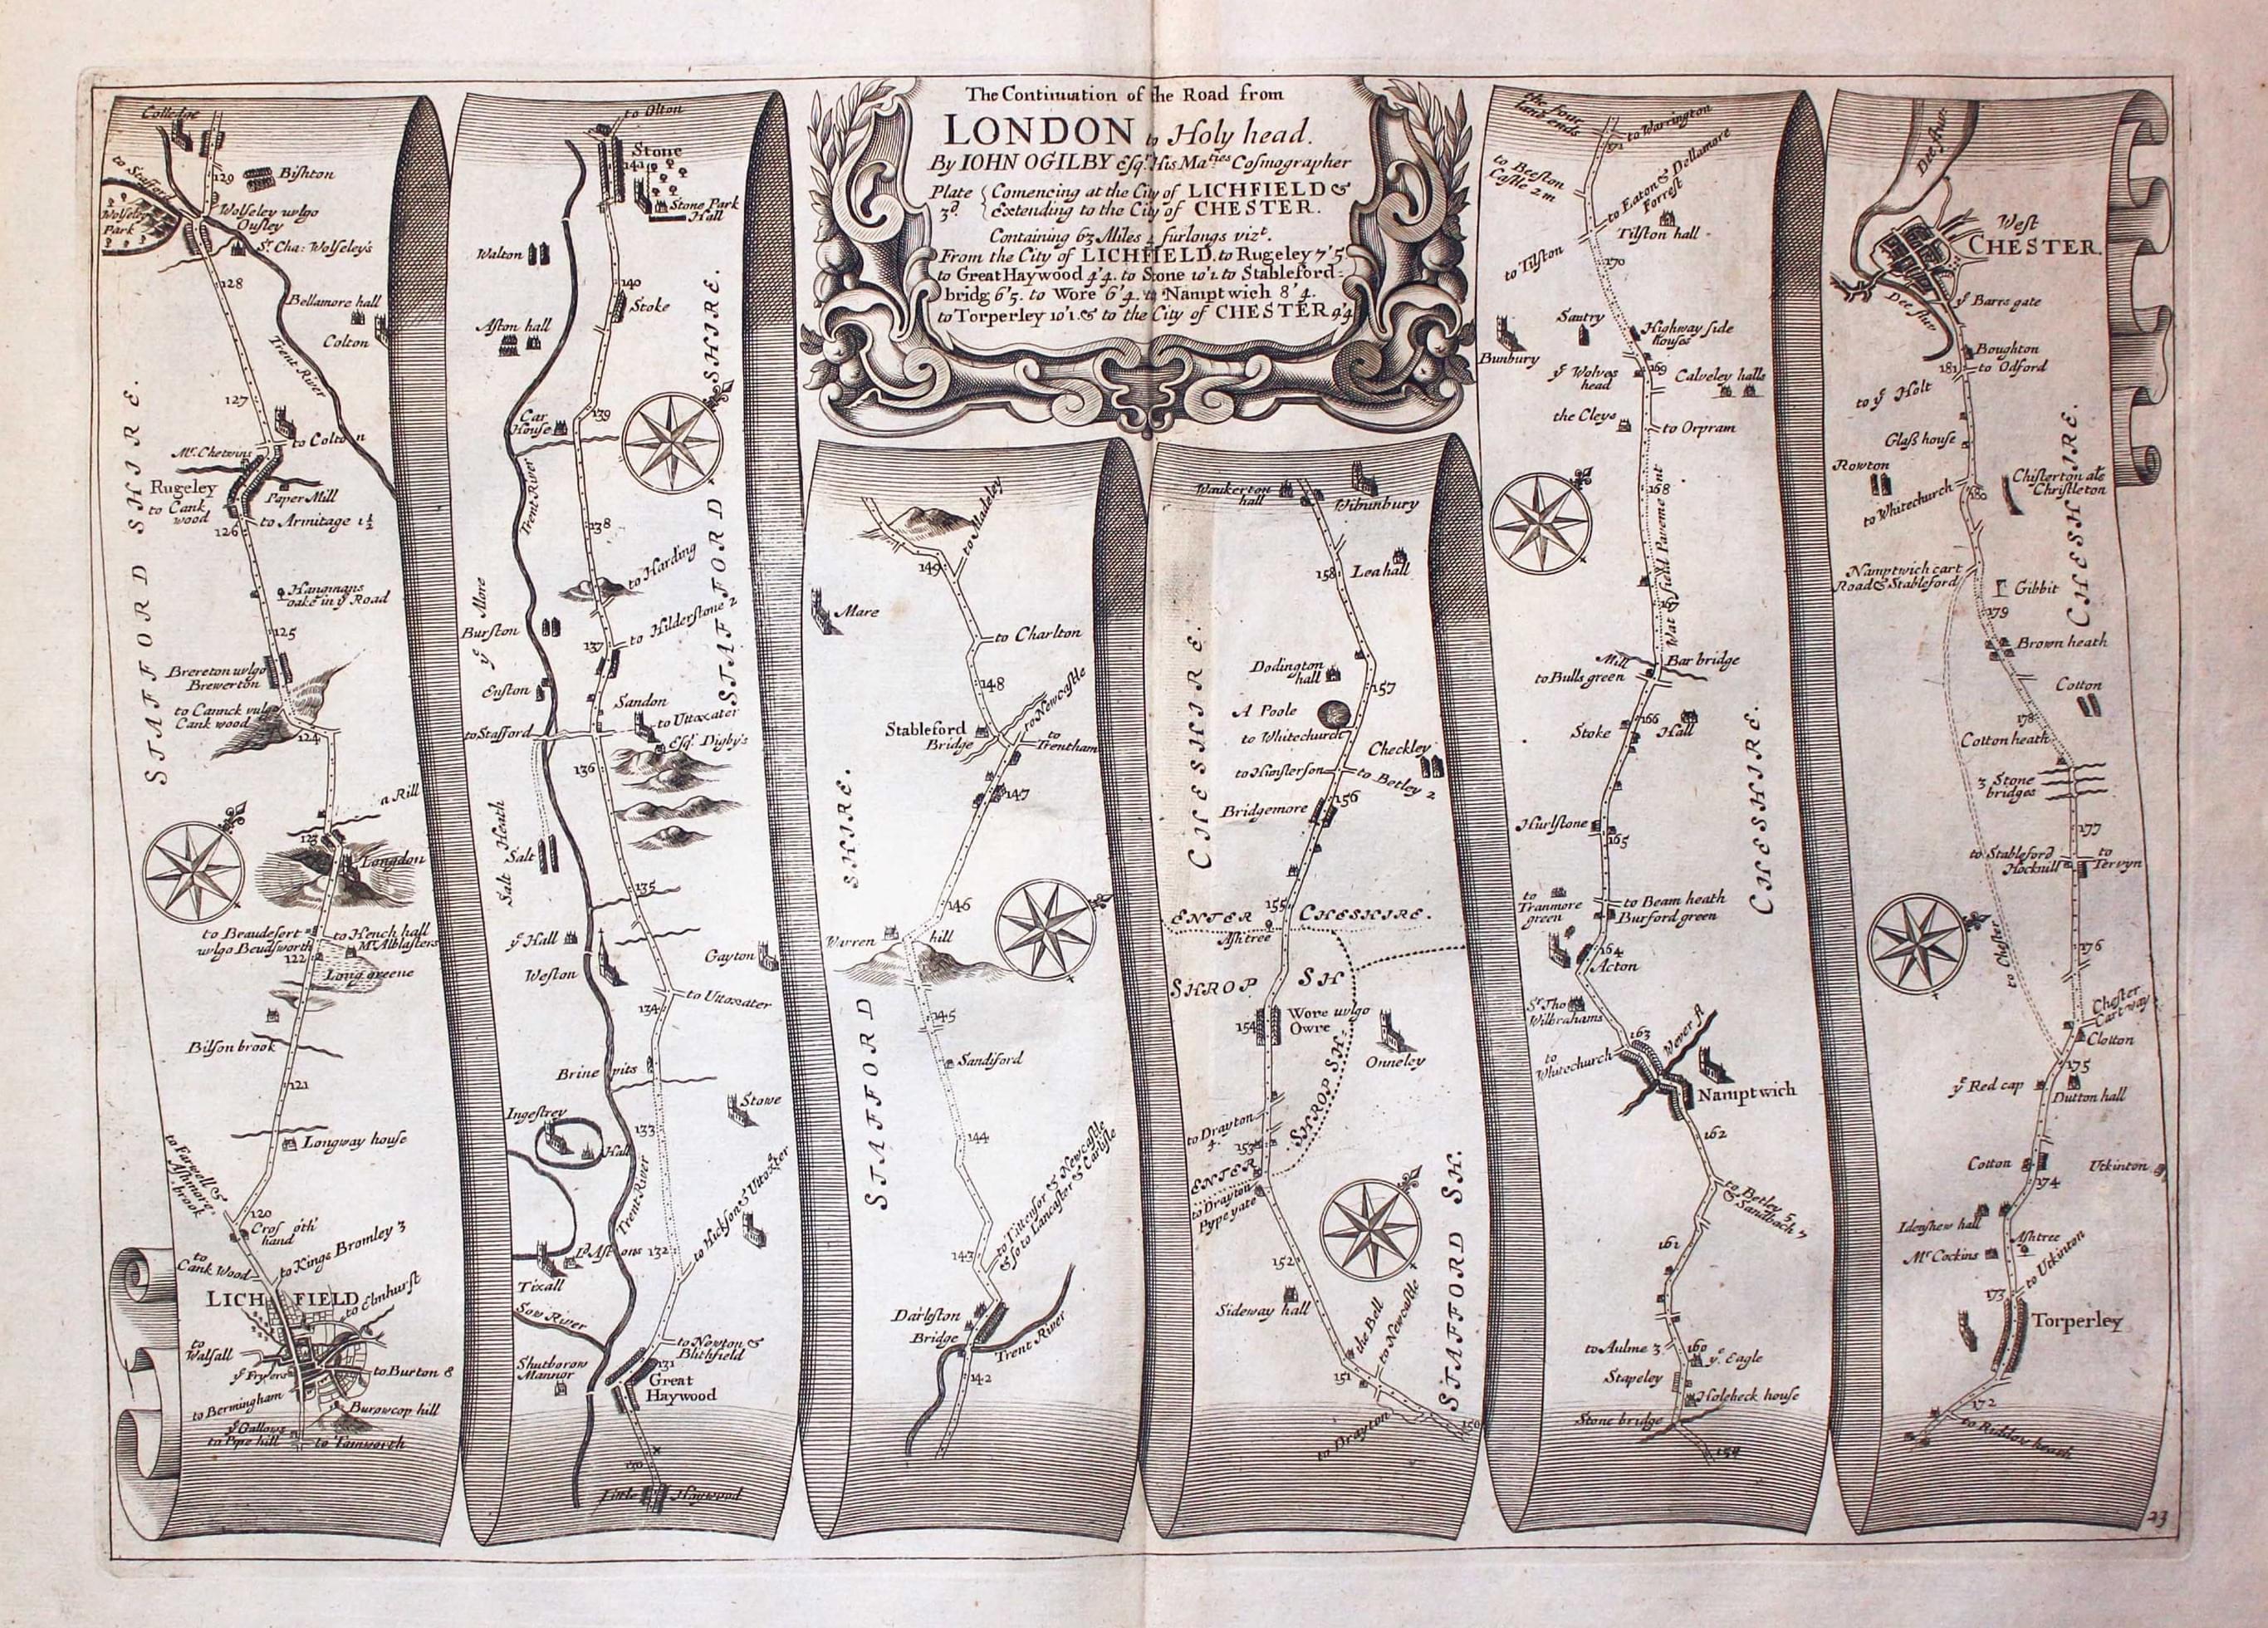 The Continuation of the Road from
LONDON to Holy head.
By IOHN OGILBY Esqr. His Maties Cosmographer
Plate 3d. { Comencing at the City of LICHFIELD &
Extending to the City of CHESTER.
Containing 63 Miles 2 furlongs vizt.
From the City of LICHFIELD. to Rugeley 7'5
to Great Haywood 4'4. to Stone 10'1 to Stableford-
bridg 6'5. to Wore 6'4. to Namptwich 8'4.
to Torperley 10'1. & to the City of CHESTER 9'4
Colledge
129
Bishton
to Stafford
Wolseley Park
Wolseley uulgo
Ousley
Sr. Cha: Wolseley's
128
Bellamore hall
Colton
Trent River
127
to Colton
Mr. Chetwins
Rugeley
Paper Mill
to Cank
wood
to Armitage 1½
126
Hangmans
oake in ye Road
125
Brereton uulgo
Brewerton
to Cannck vulgo
Cank wood
124
STAFFORD SHIRE.
a Rill
123
Longdon
to Beaudesert
uulgo Beudsworth
to Hench hall
Mr. Alblasters
122
Long greene
Bilson brook
121
Longway house
to Farwell &
Ashmore
brook
120
Cros oth'
hand
to Cank Wood
to Kings Bromley 3
LICHFIELD
to Elmhurst
to Walsall
ye Fryers
to Burton 8
to Bermingham
Burowcop hill
ye Gallows
to Pipe hill
to Tamworth
to Olton
Stone
141
Stone Park
Hall
Walton
140
Stoke
Aston hall
STAFFORD SHIRE.
139
Car
House
Trent River
138
to Harding
ye More
Burston
to Hilderstone 2
137
Enston
Sandon
to Stafford
to Uttoxater
Esqr. Digby's
136
Salt Heath
Salt
135
ye Hall
Weston
Gayton
to Uttoxater
134
Brine pits
Stowe
Ingestrey
Hall
133
Trent River
to Hickson & Uttoxter
132
Ld. Astons
Tixall
Sow River
to Newton &
Blithfield
Shutborow
Mannor
131
Great
Haywood
130
Little Haywood
to Madeley
149
Mare
to Charlton
148
to Newcastle
Stableford
Bridge
to
Trentham
147
146
Warren hill
STAFFORD SHIRE.
145
Sandiford
144
to Tittensor & Newcastle
& so to Lancaster & Carlisle
143
Darlston
Bridge
Trent River
142
Waukerton
hall
Wibunbury
158
Lea hall
CHESHIRE.
Dodington
hall
157
A Poole
to Whitechurch
Checkley
to Hunsterson
to Betley 2
156
Bridgemore
155
ENTER CHESHIRE.
Ashtree
SHROP SH
154
Wore uulgo
Owre
Onneley
SHROP SH.
to Drayton
4
153
ENTER
to Drayton
Pype yate
152
Sideway hall
the Bell
to Newcastle
151
to Drayton
150
STAFFORD SH.
the four
lane ends
to Warrington
171
to Beeston
Castle 2 m
to Eaton & Dellamore
Forrest
Tilston hall
to Tilston
170
Santry
Highway side
houses
Bunbury
ye Wolves
head
169
Calveley halls
the Cleys
to Orpram
168
Watfield Pavement
167
Mill
Bar bridge
to Bulls green
166
Stoke
Hall
CHESHIRE.
Hurlstone
165
to
Tranmore
green
to Beam heath
Burford green
164
Acton
Sr. Tho
Wilbrahams
163
Wever R
to
Whitechurch
Namptwich
162
to Betley 5
& Sandbach 7
161
to Aulme 3
160
ye Eagle
Stapeley
Holeheck house
Stone bridge
159
Dee fluv.
West
CHESTER.
Dee fluv.
ye Barrs gate
Boughton
181
to Odford
to ye Holt
Glass house
Rowton
180
Christerton als
Christleton
to Whitechurch
Namptwich cart
Road & Stableford
Gibbit
179
CHESHIRE.
Brown heath
Cotton
178
Cotton heath
3 Stone
bridges
177
to Stableford
Hocknill
to
Tervyn
176
to Chester
Chester
Cart way
Clotton
175
ye Red cap
Dutton hall
Cotton
Utkinton
174
Idenshew hall
Ashtree
Mr. Cockins
to Utkinton
173
Torperley
172
to Ridlow heath
23